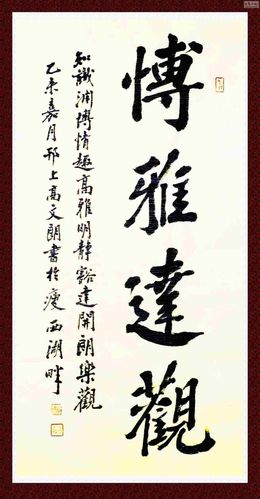 愽雅達觀
知識渊愽情趣高雅明靜豁達開朗樂觀
乙未嘉月邗上高文朗書於瘦西湖畔